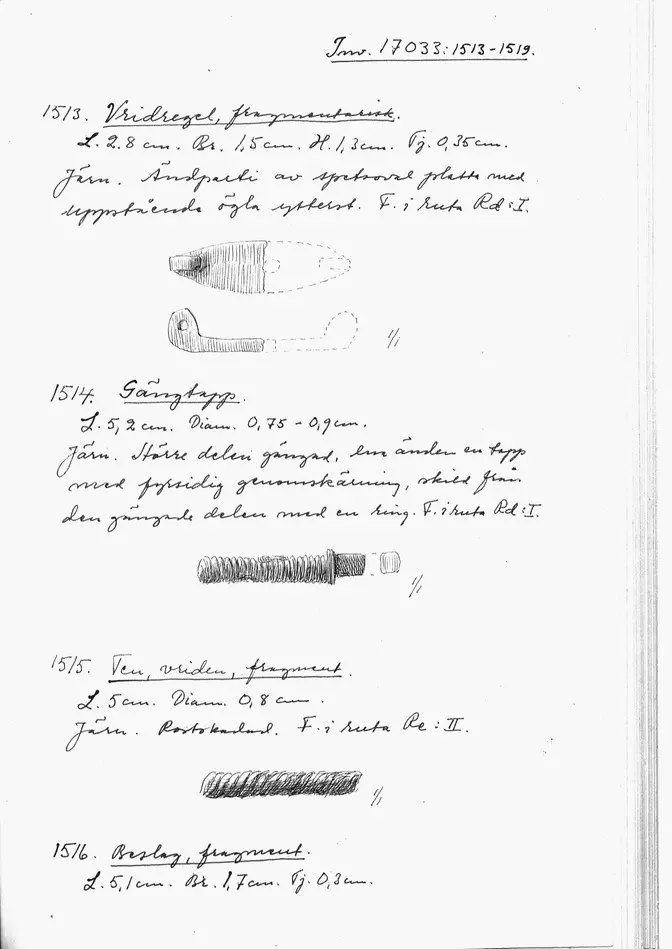 Inv. 17033:1513-1519.
1513. Vridregel, fragmentarisk.
L. 2.8 cm. Br. 1,5 cm. H. 1,3 cm. Tj. 0,35 cm.
Järn. Ändparti av spetsoval platta med
uppstående ögla ytterst. F. i ruta Rd:I.
1/1
1514. Gängtapp.
L. 5,2 cm. Diam. 0,75 - 0,9 cm.
Järn. Större delen gängad, ena änden en tapp
med fyrsidig genomskärning, skild från
den gängade delen med en ring. F. i ruta Rd:I.
1/1
1515. Ten, vriden, fragment.
L. 5 cm. Diam. 0,8 cm.
Järn. Rostskadad. F. i ruta Re:II.
1/1
1516. Beslag, fragment.
L. 5,1 cm. Br. 1,7 cm. Tj. 0,3 cm.